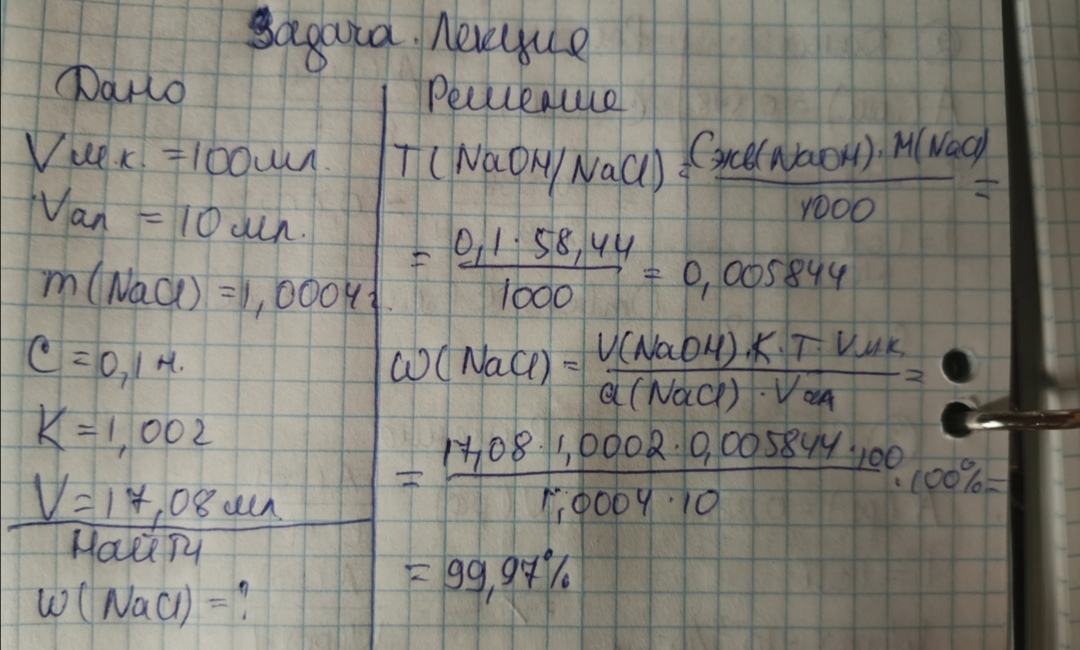 Задача. Лекция
Дано
Vм.к. = 100 мл.
Vал = 10 мл.
m(NaCl) = 1,0004 г.
C = 0,1 н.
K = 1,002
V = 17,08 мл
Найти
ω(NaCl) = ?
Решение
T(NaOH/NaCl) = Cэкв(NaOH) · M(NaCl) / 1000 =
= 0,1 · 58,44 / 1000 = 0,005844
ω(NaCl) = V(NaOH) · K · T · Vмк / a(NaCl) · Vал =
= 17,08 · 1,0002 · 0,005844 · 100 / 1,0004 · 10 · 100% =
= 99,97%